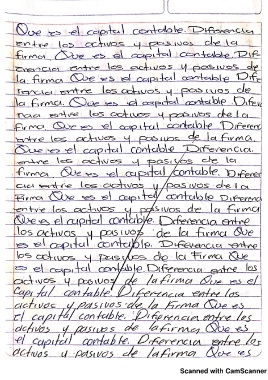 Que es el capital contable. Diferencia
entre los activos y pasivos de la
firma. Que es el capital contable. Dif-
erencia entre los activos y pasivos de
la firma Que es el capital contable Dife
rencia entre los activos y pasivos de
la firma. Que es el capital contable. Difere
ncia entre los activos y pasivos de la
firma Que es el capital contable Diferenc
entre los activos y pasivos de la firma.
Que es el capital contable Diferencia.
entre los activos y pasivos de la
firma Que es el capital contable. Diferen
cia entre los activos y pasivos de la
firma Que es el capital contable Diferencia
entre los activos y pasivos de la firma
Que es el capital contable Diferencia Entre
los activos y pasivos de la firma Que
es el capital contable. Diferencia entre
los activos y pasivos de la Firma Que
es el capital contable Diferencia entre los
activos y pasivos de la firma Que es el
Capital contable. Diferencia entre los
activos y pasivos de la firma Que es
el capital contable. Diferencia entre los
activos y pasivos de la firma Que es
el capital contable Diferencia entre los
activos y pasivos de la firma Que es
Scanned with CamScanner